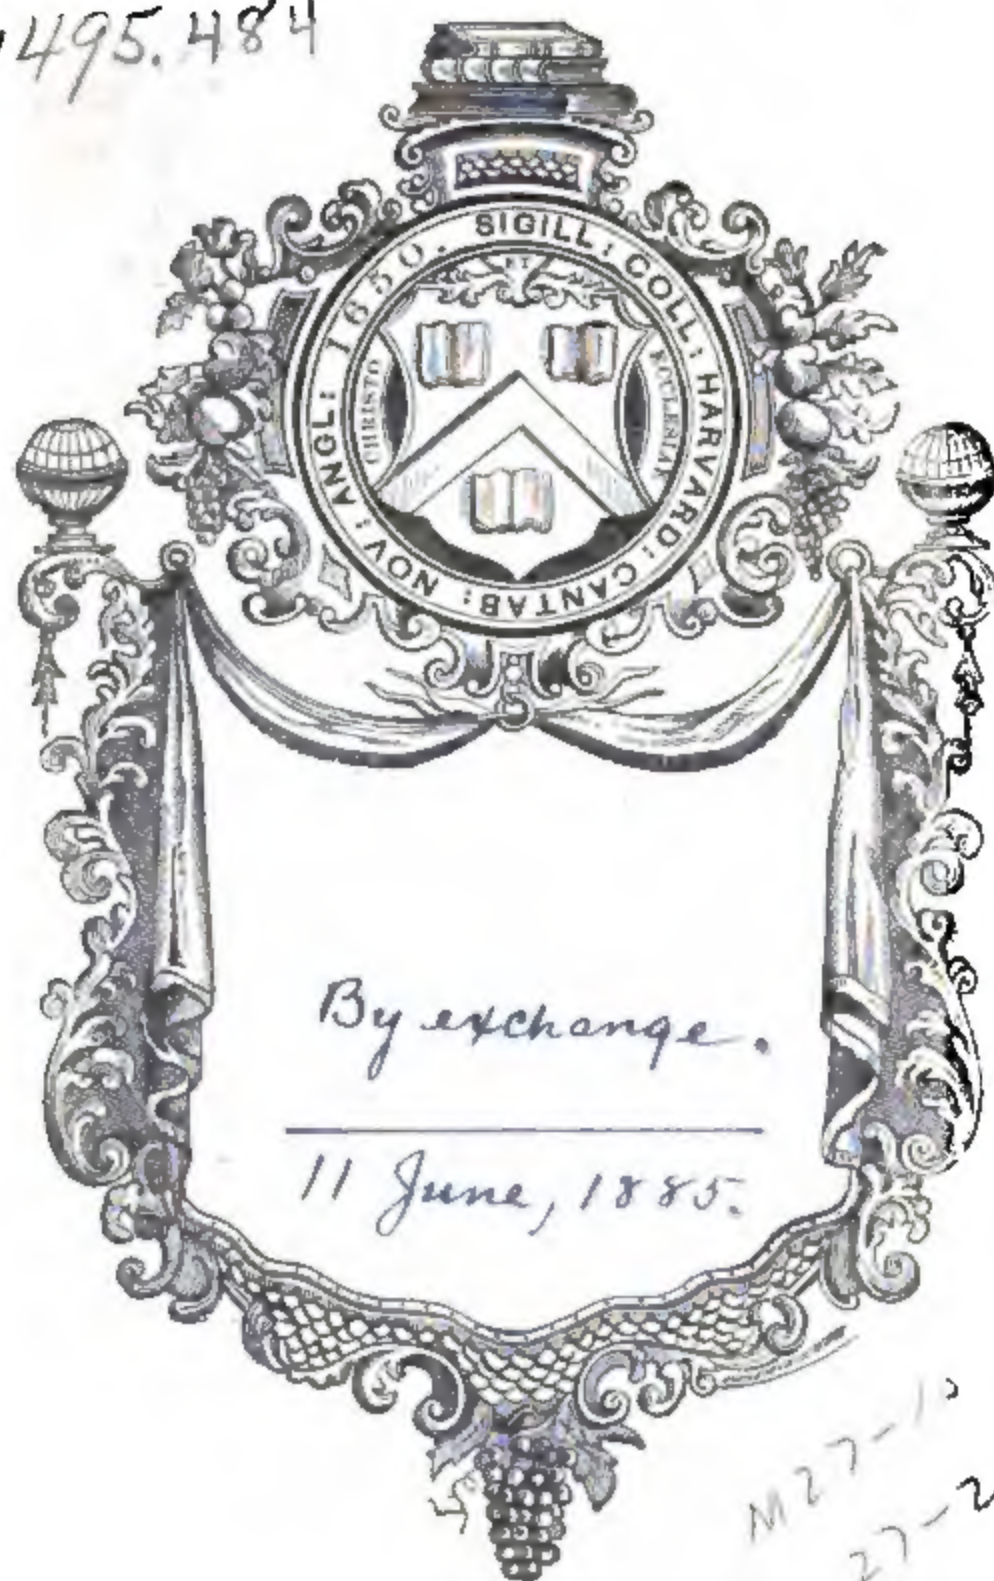 495.484
SIGILL: COLL: HARVARD: CANTAB: NOV: ANGL: 1650.
ET
CHRISTO
ECCLESIAE
By exchange.
11 June, 1885.
M27-10
27-2